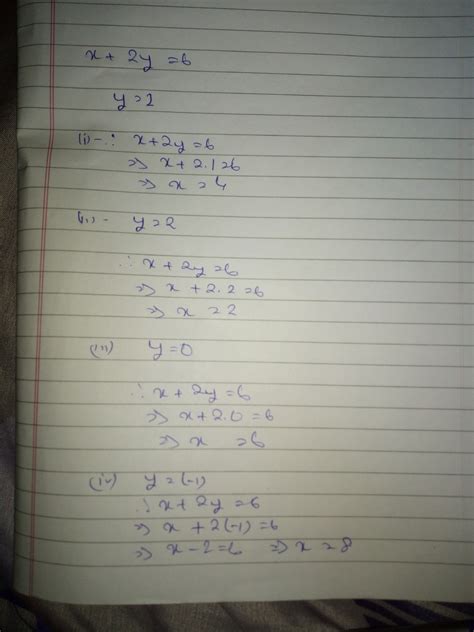 x + 2y = 6
y = 2
(i) - ∴ x + 2y = 6
⇒ x + 2.1 = 6
⇒ x = 4
(ii) - y = 2
∴ x + 2y = 6
⇒ x + 2.2 = 6
⇒ x = 2
(iii) y = 0
∴ x + 2y = 6
⇒ x + 2.0 = 6
⇒ x = 6
(iv) y = (-1)
∴ x + 2y = 6
⇒ x + 2(-1) = 6
⇒ x - 2 = 6 ⇒ x = 8